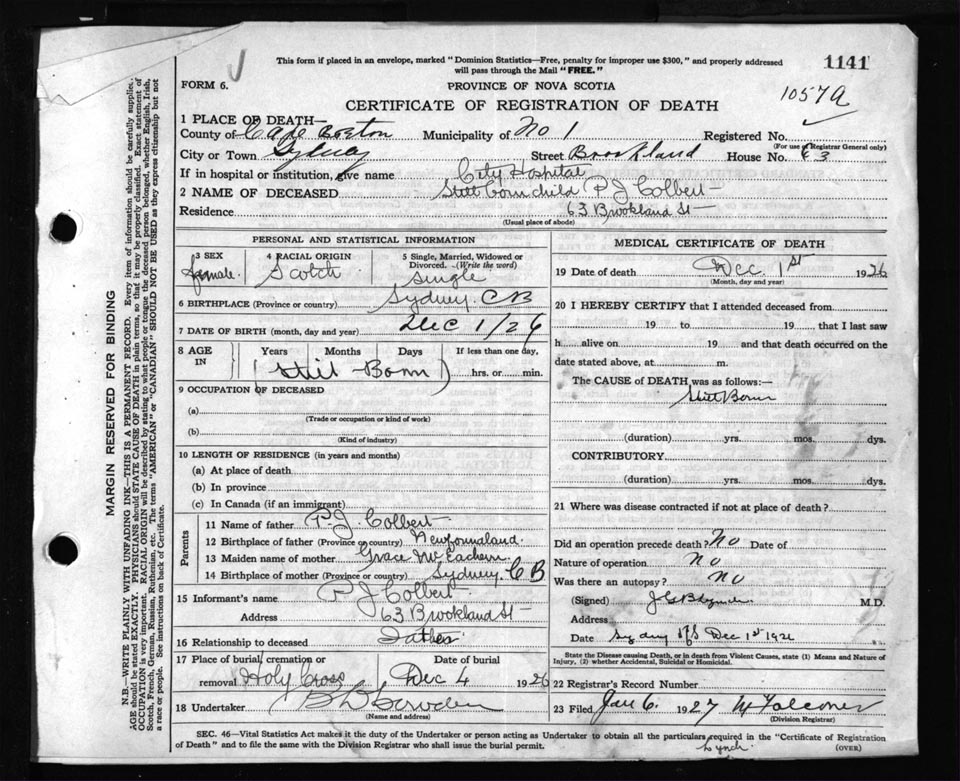 This form if placed in an envelope, marked "Dominion Statistics—Free, penalty for improper use $300," and properly addressed
will pass through the Mail "FREE."
1141
FORM 6.
PROVINCE OF NOVA SCOTIA
1057a
CERTIFICATE OF REGISTRATION OF DEATH
1 PLACE OF DEATH—
County of Cape Breton Municipality of No 1 Registered No.
(For use of Registrar General only)
City or Town Sydney Street Brookland House No. 63
If in hospital or institution, give name City Hospital
2 NAME OF DECEASED Still born child P J Colbert
Residence 63 Brookland St
(Usual place of abode)
PERSONAL AND STATISTICAL INFORMATION
3 SEX female
4 RACIAL ORIGIN Scotch
5 Single, Married, Widowed or Divorced. (Write the word) Single
6 BIRTHPLACE (Province or country) Sydney C B
7 DATE OF BIRTH (month, day and year) Dec 1/26
8 AGE IN Years Months Days If less than one day, hrs. or min.
(Still Born)
9 OCCUPATION OF DECEASED
(a)
(Trade or occupation or kind of work)
(b)
(Kind of industry)
10 LENGTH OF RESIDENCE (in years and months)
(a) At place of death
(b) In province
(c) In Canada (if an immigrant)
Parents
11 Name of father P. J. Colbert
12 Birthplace of father (Province or country) Newfoundland
13 Maiden name of mother Grace McEachern
14 Birthplace of mother (Province or country) Sydney C B
15 Informant's name P J Colbert
Address 63 Brookland St
16 Relationship to deceased Father
17 Place of burial, cremation or removal Holy Cross
Date of burial Dec 4 1926
18 Undertaker
(Name and address)
MEDICAL CERTIFICATE OF DEATH
19 Date of death Dec. 1st 1926
(Month, day and year)
20 I HEREBY CERTIFY that I attended deceased from
19 to 19, that I last saw
h alive on 19 and that death occurred on the
date stated above, at m.
The CAUSE OF DEATH was as follows:—
Still Born
(duration) yrs. mos. dys.
CONTRIBUTORY
(duration) yrs. mos. dys.
21 Where was disease contracted if not at place of death?
Did an operation precede death? No Date of
Nature of operation No
Was there an autopsy? No
(Signed) M.D.
Address
Date Sydney NS Dec 1st 1926
State the Disease causing Death, or in death from Violent Causes, state (1) Means and Nature of
Injury, (2) whether Accidental, Suicidal or Homicidal.
22 Registrar's Record Number
23 Filed Jan 6. 1927 Falconer
(Division Registrar)
SEC. 46—Vital Statistics Act makes it the duty of the Undertaker or person acting as Undertaker to obtain all the particulars required in the "Certificate of Registration
of Death" and to file the same with the Division Registrar who shall issue the burial permit.
Lynch
(OVER)
MARGIN RESERVED FOR BINDING
N.B.—WRITE PLAINLY WITH UNFADING INK—THIS IS A PERMANENT RECORD. Every item of information should be carefully supplied.
AGE should be stated EXACTLY. PHYSICIANS should STATE CAUSE OF DEATH in plain terms, so that it may be properly classified. Exact statement of
OCCUPATION is very important. RACIAL ORIGIN will be described by stating to what people or tongue the deceased person belonged, whether English, Irish,
Scotch, French, German, Russian, Ruthenian, etc. The terms "AMERICAN" or "CANADIAN" SHOULD NOT BE USED as they express citizenship but not
a race or people. See instructions on back of Certificate.